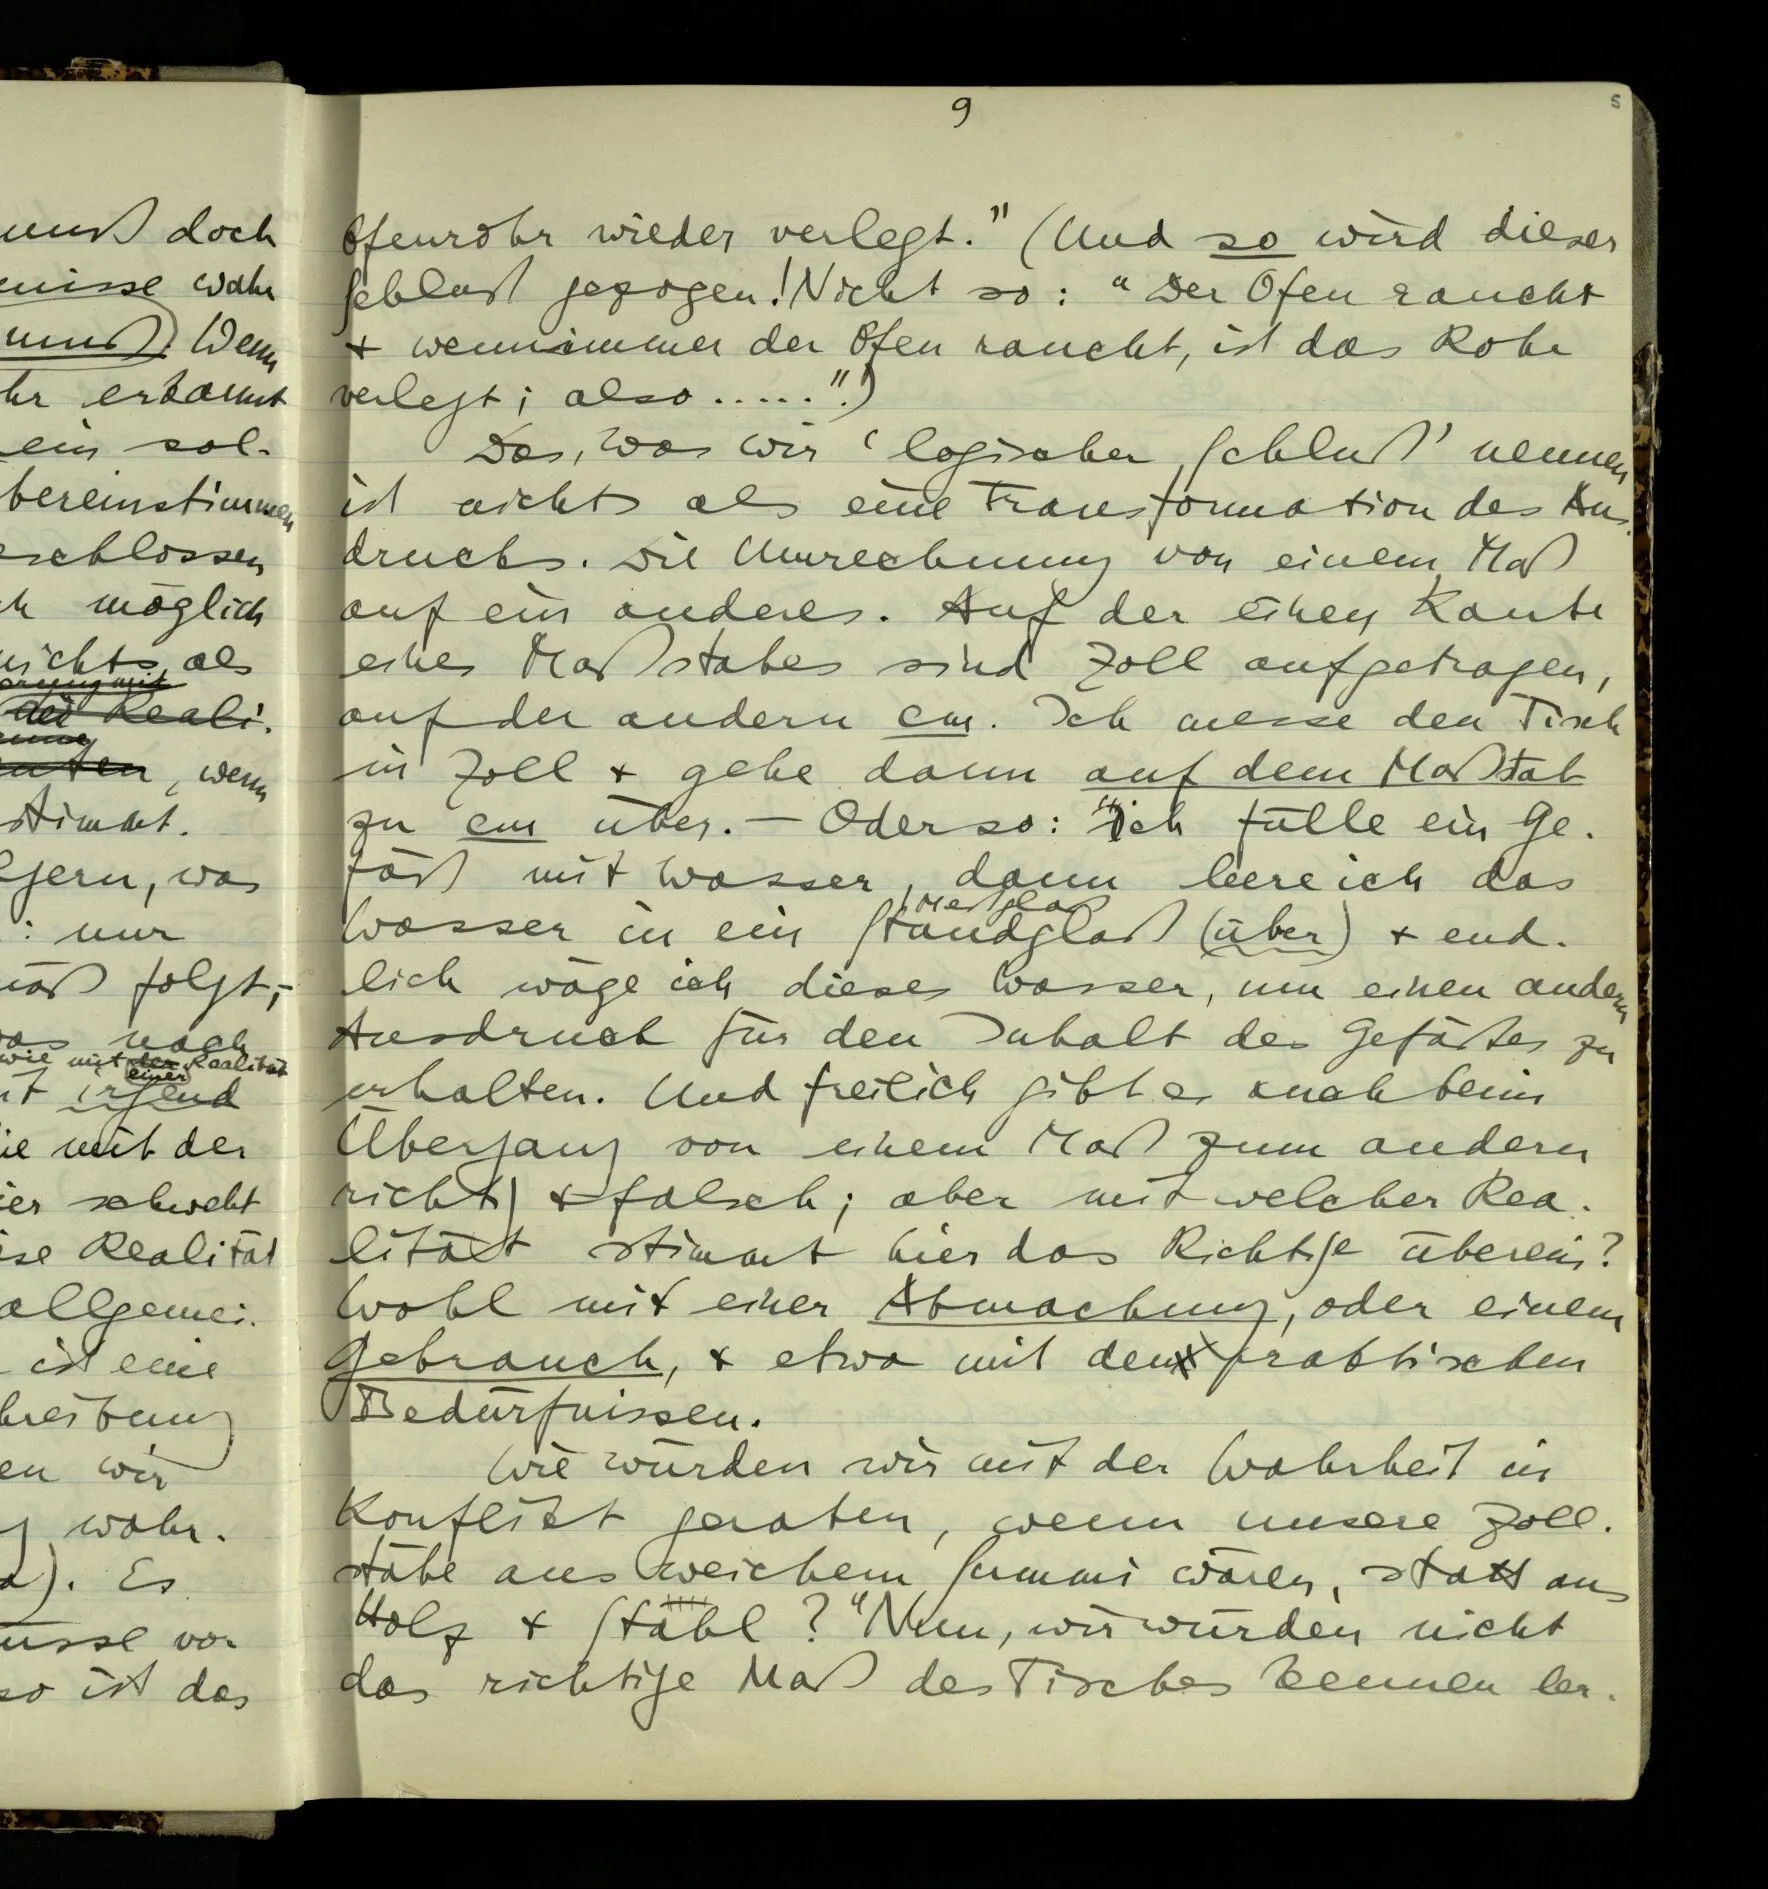 9
5
muß doch
nisse wahr
muß). Wenn
hr erkannt
ein sol-
bereinstimmen
schlossen
ch möglich
nichts, als
der Reali-
, wenn
stimmt.
gern, was
: nur
mäß folgt,–
was noch
wie mit der Realität
einer
it irgend
ie mit der
ier schwebt
ise Realität
allgemei-
ist eine
hreibung
en wir
g wahr.
a). Es
üsse vor
so ist das
Ofenrohr wieder verlegt." (Und so wird dieser
Schluß gezogen! Nicht so: "Der Ofen raucht
+ wennimmer der Ofen raucht, ist das Rohr
verlegt; also ....." !)
Das, was wir 'logischer Schluß' nennen
ist nichts als eine Transformation des Aus-
drucks. Die Umrechnung von einem Maß
auf ein anderes. Auf der einen Kante
eines Maßstabes sind Zoll aufgetragen,
auf der andern cm. Ich messe den Tisch
in Zoll + gehe dann auf dem Maßstab
zu cm über. — Oder so: "Ich fülle ein Ge-
fäß mit Wasser, dann leere ich das
Meßglas
Wasser in ein Standglas (über) + end-
lich wäge ich dieses Wasser, um einen andern
Ausdruck für den Inhalt des Gefäßes zu
erhalten. Und freilich gibt es auch beim
Übergang von einem Maß zum andern
richtig + falsch; aber mit welcher Rea-
lität stimmt hier das Richtige überein?
Wohl mit einer Abmachung, oder einem
Gebrauch, + etwa mit den praktischen
Bedürfnissen.
Wie würden wir mit der Wahrheit in
Konflikt geraten, wenn unsere Zoll-
stäbe aus weichem Gummi wären, statt aus
Holz + Stahl? "Nun, wir würden nicht
das richtige Maß des Tisches kennen ler-